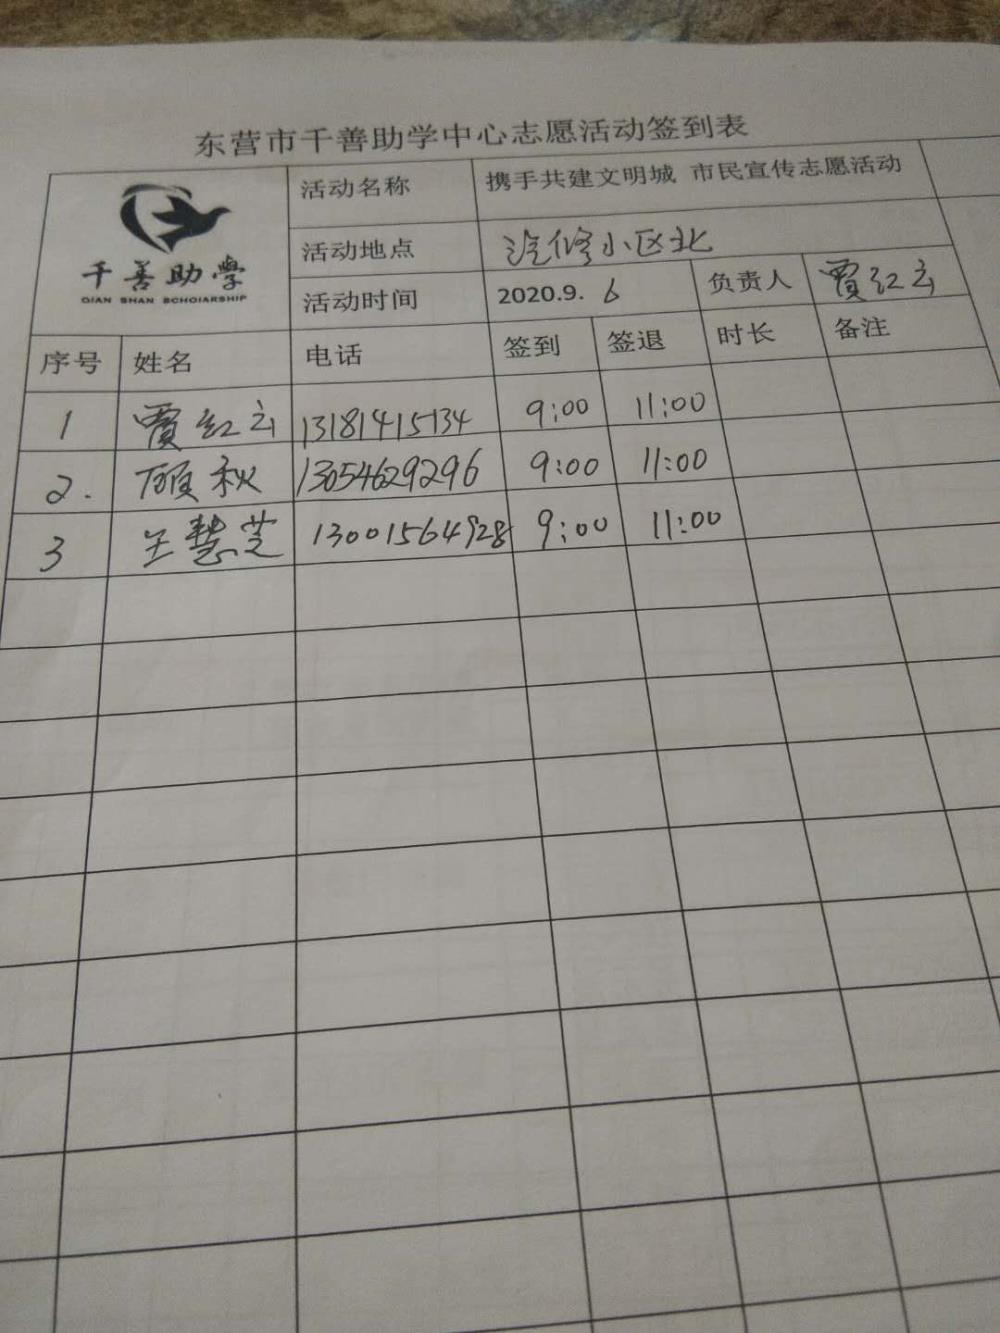 东营市千善助学中心志愿活动签到表
千善助學
QIAN SHAN SCHOIARSHIP
活动名称 携手共建文明城 市民宣传志愿活动
活动地点 汽修小区北
活动时间 2020.9. 6 负责人 賈红云
序号 姓名 电话 签到 签退 时长 备注
1 賈红云 13181415134 9:00 11:00
2. 顾秋 13054629296 9:00 11:00
3 王慧芝 13001564928 9:00 11:00